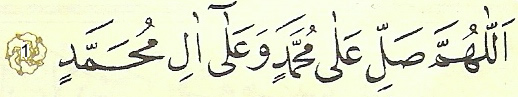 اَللّٰهُمَّ صَلِّ عَلٰى مُحَمَّدٍ وَعَلٰٓى اٰلِ مُحَمَّدٍ 1